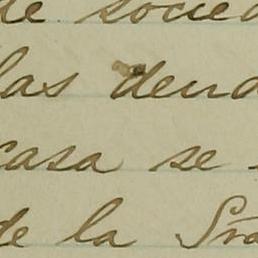 de socied
las deud
casa se
de la Sra